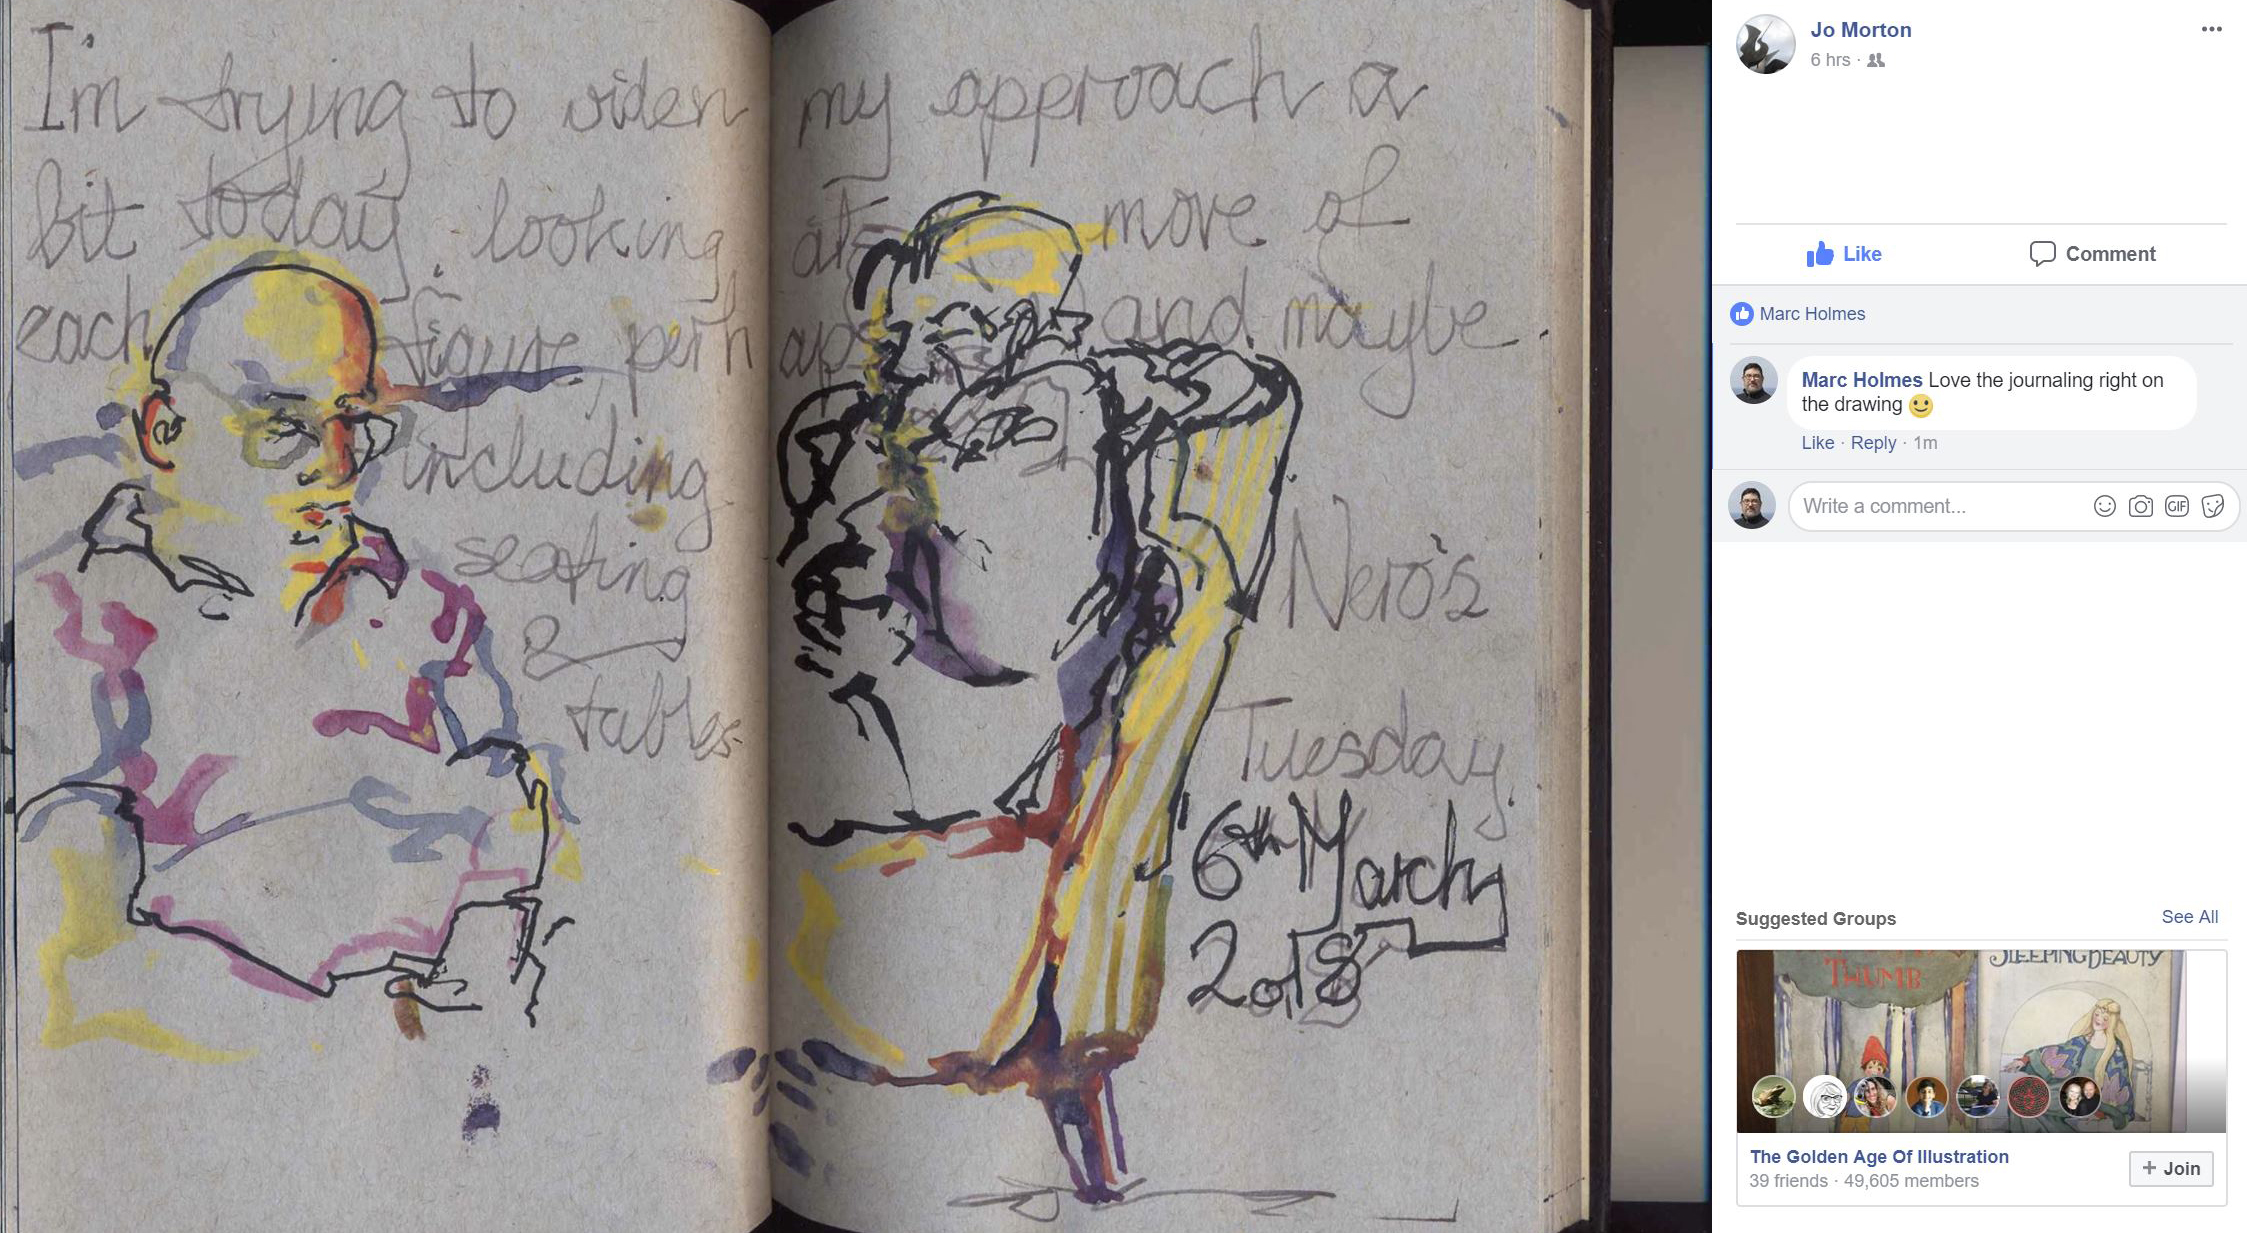 I'm trying to widen my approach a
bit today, looking at more of
each figure perhaps and maybe
including
seating
&
tables
Nero's
Tuesday
6th March
2018
Jo Morton
6 hrs ·
Like
Comment
Marc Holmes
Marc Holmes Love the journaling right on
the drawing 🙂
Like · Reply · 1m
Write a comment...
GIF
Suggested Groups
See All
THUMB
SLEEPING BEAUTY
The Golden Age Of Illustration
39 friends · 49,605 members
+ Join